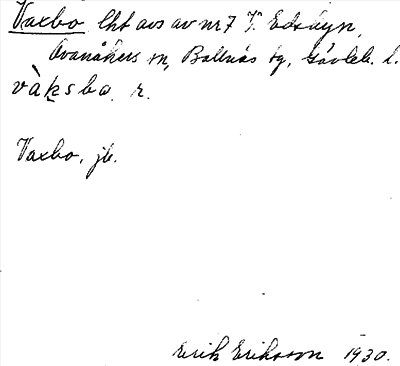 Vaxbo lht avs av nr 7 V. Edsbyn,
Ovanåkers sn, Bollnäs tg, Gävleb. l.
vàksbo. r.
Vaxbo, jb.
Erik Eriksson 1930.